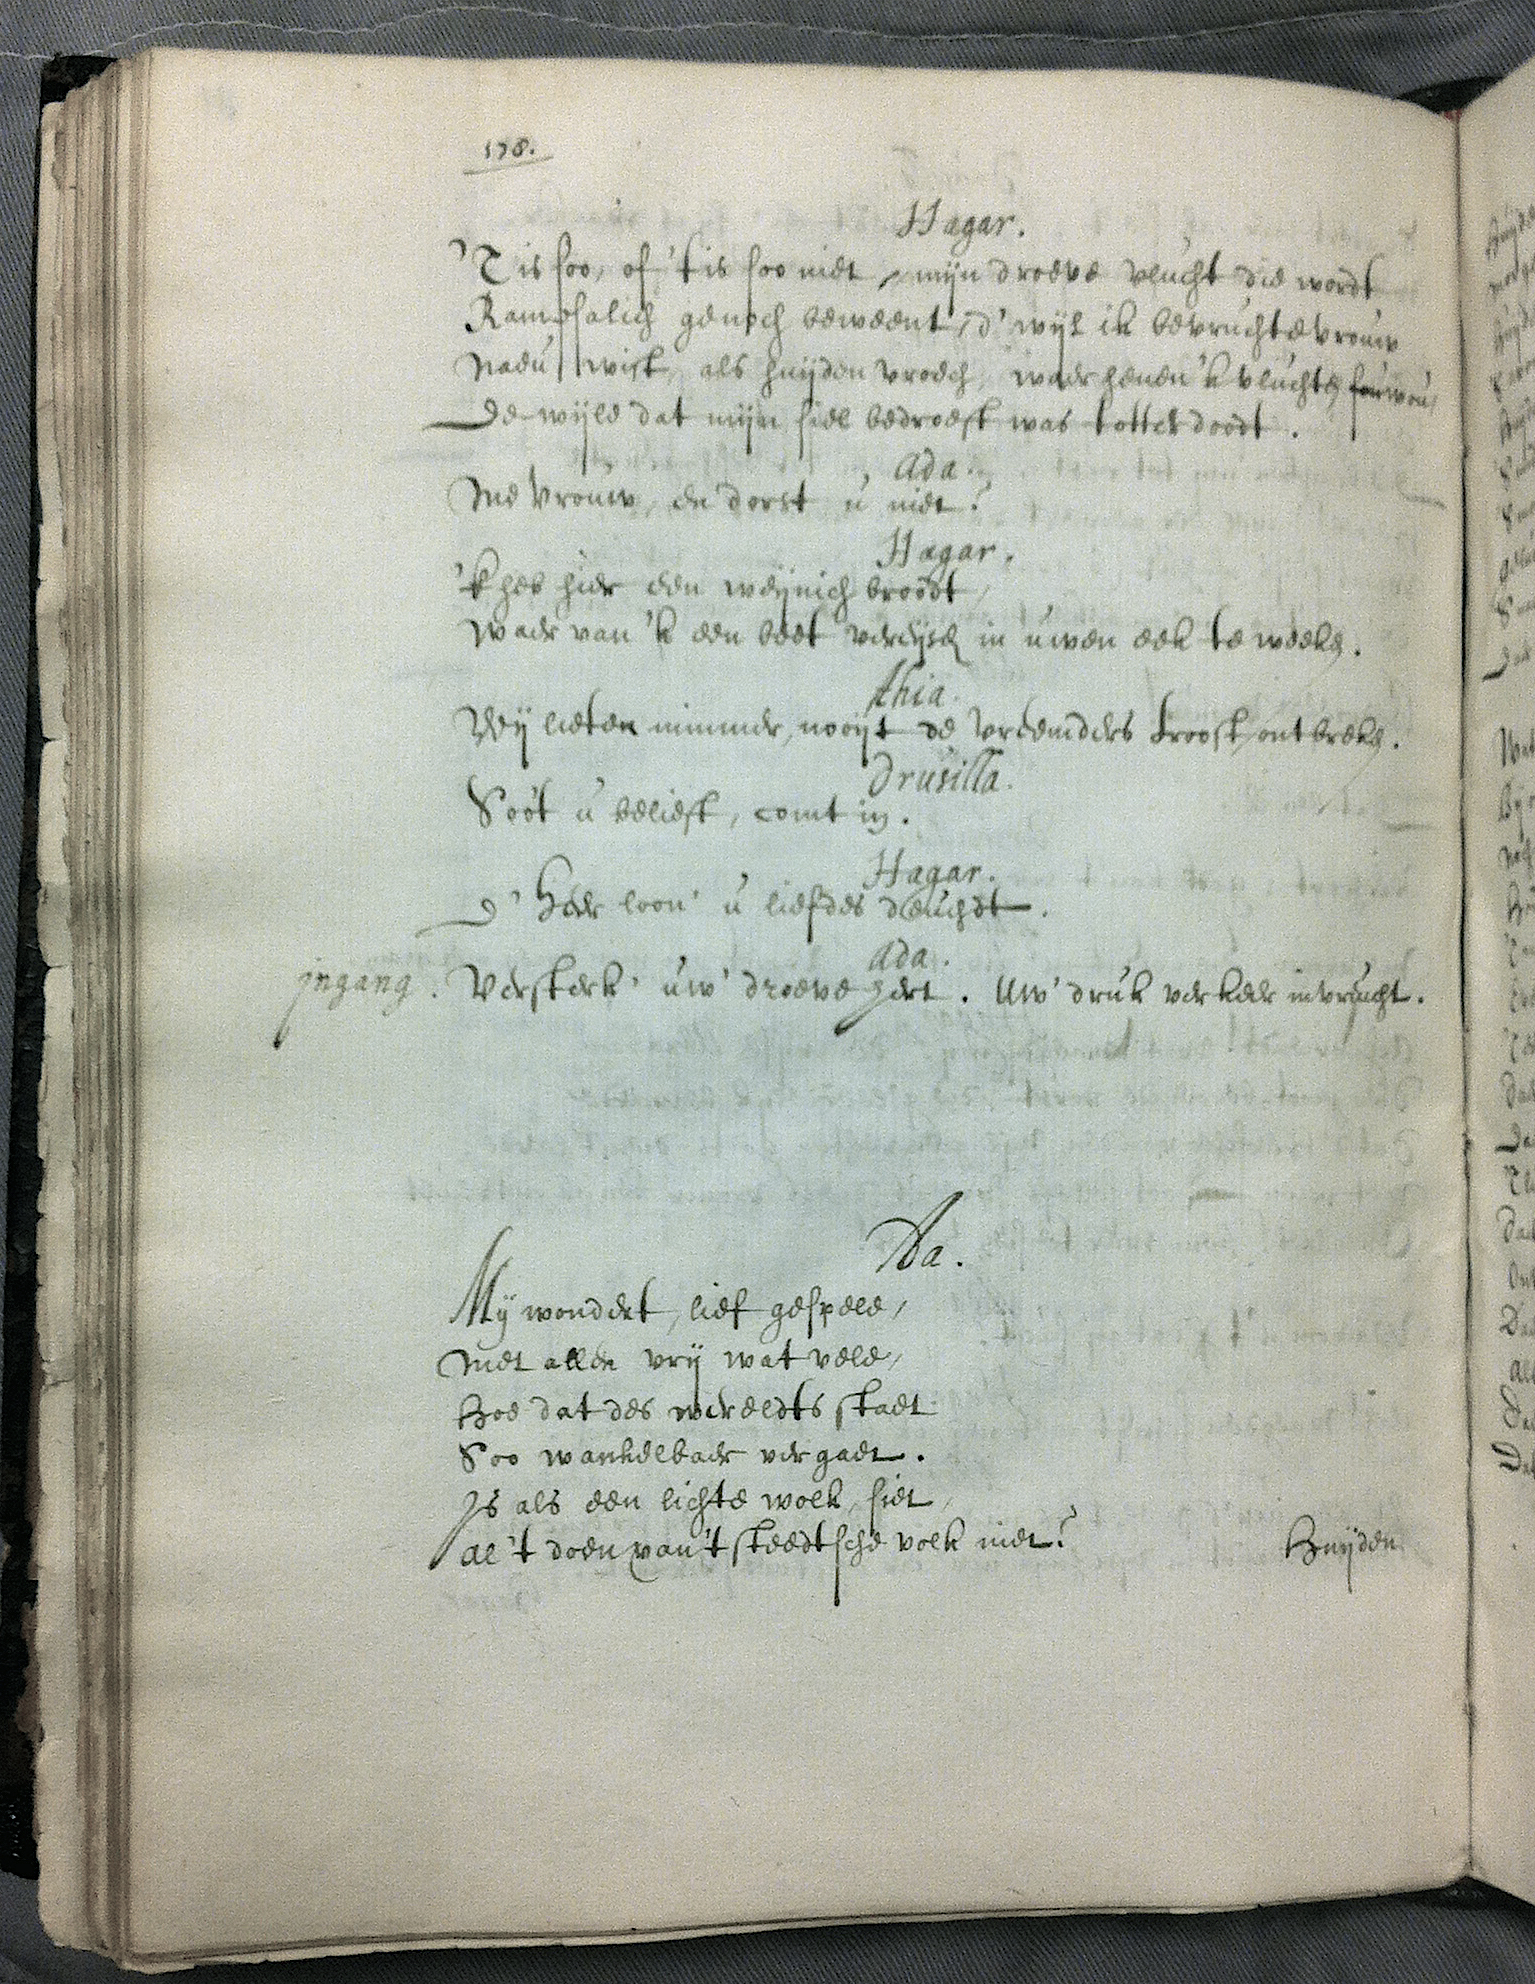 178.
Hagar.
'T is soo, of 't is soo niet, mijn droeve vlucht die wordt
Rampsalich genoch beweent, d'wijl ik bevruchte vrouw
Naeu wist, als huijden vroech, waer henen 'k vluchten sou wou,
De wijle dat mijn siel bedroeft was totter doodt.
Ada.
Me vrouw, en dorst u niet?
Hagar.
'k heb hier een weijnich broodt,
Waer van 'k een beet vereijsch in uwen eek te weeken.
Thia.
Wij lieten nimmer, nooijt de vreemders troost ontbreken.
Drusilla.
Soo't u belieft, comt in.
Hagar.
D'Heer loon' u liefdes deuchdt.
Ada.
jngang. Versterk' uw' droeve hert. Uw' druk verkeer in vreucht.
Aa.
Mij wondert, lief gespeele,
Met allen vrij wat veele,
Hoe dat des wereldts staet
Soo wankelbaer vergaet.
Is als een lichte wolk, siet,
Al 't doen van 't steedtsche volk niet?
Huijden